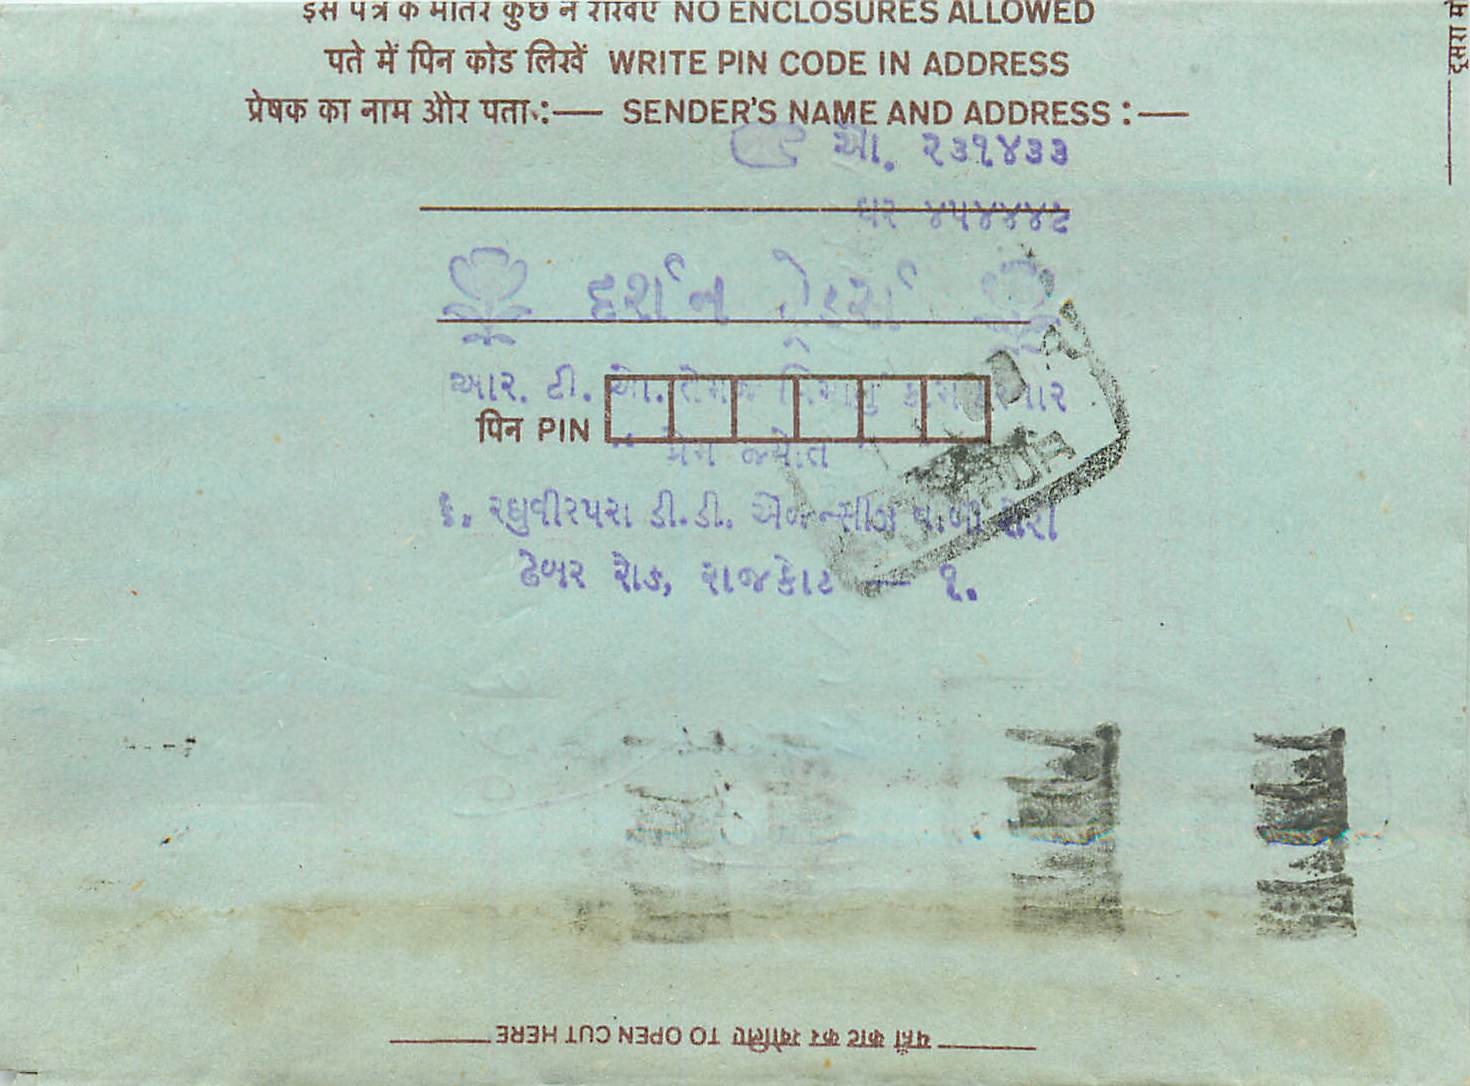 इस पत्र के भीतर कुछ न रखिए NO ENCLOSURES ALLOWED
पते में पिन कोड लिखें WRITE PIN CODE IN ADDRESS
प्रेषक का नाम और पता :— SENDER'S NAME AND ADDRESS :—
ઓ. ૨૩૧૪૩૩
ઘર ૪૫૪૪૪૮
દર્શન ટ્રેડર્સ
આર. ટી. ઓ. તેમજ વિમાનું કામ કરનાર
पिन PIN
પ્રેમ જ્યોત
૬. રઘુવીરપરા ડી.ડી. એજન્સીઝ વાળી શેરી
ઢેબર રોડ, રાજકોટ — ૧.
यहाँ काट कर खोलिए TO OPEN CUT HERE
दूसरा